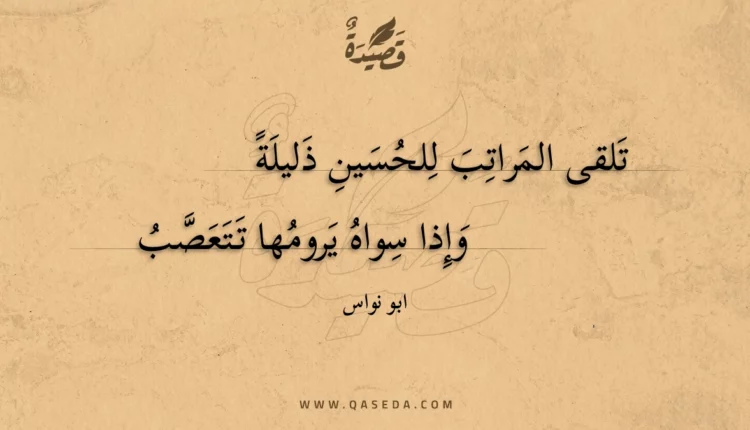 قَصِيدَةٌ
تَلقى المَراتِبَ لِلحُسَينِ ذَليلَةً
وَإِذا سِواهُ يَرومُها تَتَعَصَّبُ
ابو نواس
WWW.QASEDA.COM